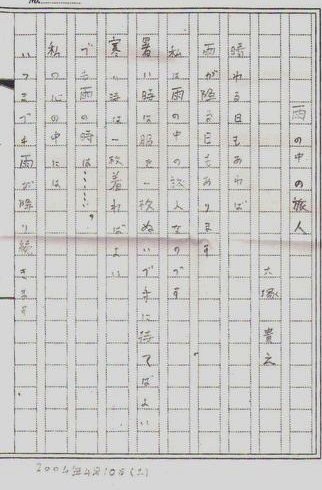 雨の中の旅人
大塚 貴之
晴れる日もあれば
雨が降る日もあります
私は雨の中の旅人なのです
暑い時は服を一枚ぬいで手に持てばよい
寒い時は一枚着ればよい
でも雨の時は……。
私の心の中には
いつまでも雨が降り続きます
2004年4月10日(土)